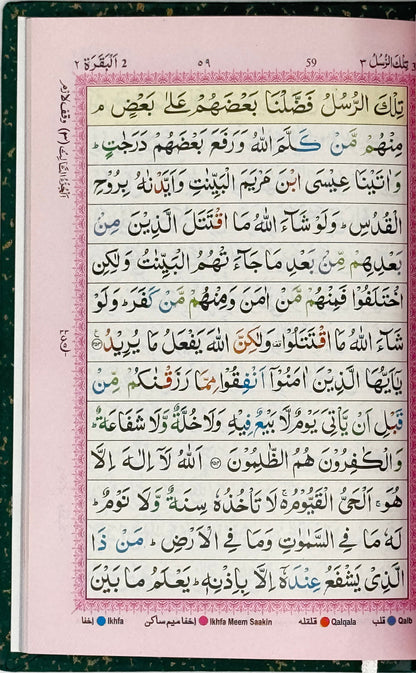 ٣ تِلۡكَ الرُّسُلُ 3
59
٥٩
2 اَلۡبَقَرَة ٢
تِلۡكَ الرُّسُلُ فَضَّلۡنَا بَعۡضَهُمۡ عَلٰى بَعۡضٍ‌ م
مِنۡهُمۡ مَّنۡ كَلَّمَ اللّٰهُ‌ وَرَفَعَ بَعۡضَهُمۡ دَرَجٰتٍ‌ؕ
وَاٰتَيۡنَا عِيۡسَى ابۡنَ مَرۡيَمَ الۡبَيِّنٰتِ وَاَيَّدۡنٰهُ بِرُوۡحِ
الۡقُدُسِ‌ؕ وَلَوۡ شَآءَ اللّٰهُ مَا اقۡتَتَلَ الَّذِيۡنَ مِنۡ
بَعۡدِهِمۡ مِّنۡ بَعۡدِ مَا جَآءَتۡهُمُ الۡبَيِّنٰتُ وَلٰكِنِ
اخۡتَلَفُوۡا فَمِنۡهُمۡ مَّنۡ اٰمَنَ وَمِنۡهُمۡ مَّنۡ كَفَرَ‌ؕ وَلَوۡ
شَآءَ اللّٰهُ مَا اقۡتَتَلُوۡا وَلٰكِنَّ اللّٰهَ يَفۡعَلُ مَا يُرِيۡدُ ۝۲۵۳
يٰٓاَيُّهَا الَّذِيۡنَ اٰمَنُوۡۤا اَنۡفِقُوۡا مِمَّا رَزَقۡنٰكُمۡ مِّنۡ
قَبۡلِ اَنۡ يَّاۡتِىَ يَوۡمٌ لَّا بَيۡعٌ فِيۡهِ وَلَا خُلَّةٌ وَّلَا شَفَاعَةٌ ‌ؕ
وَالۡكٰفِرُوۡنَ هُمُ الظّٰلِمُوۡنَ ۝۲۵۴ اَللّٰهُ لَاۤ اِلٰهَ اِلَّا
هُوَ‌ۚ اَلۡحَىُّ الۡقَيُّوۡمُ ۚ لَا تَاۡخُذُهٗ سِنَةٌ وَّلَا نَوۡمٌ‌ؕ
لَهٗ مَا فِى السَّمٰوٰتِ وَمَا فِى الۡاَرۡضِ‌ؕ مَنۡ ذَا
الَّذِىۡ يَشۡفَعُ عِنۡدَهٗۤ اِلَّا بِاِذۡنِهٖ‌ؕ يَعۡلَمُ مَا بَيۡنَ
وقف لازم
الجزء الثالث (٣)
Qalb قلب Qalqala قلقله Ikhfa Meem Saakin إخفا ميم ساكن Ikhfa إخفا